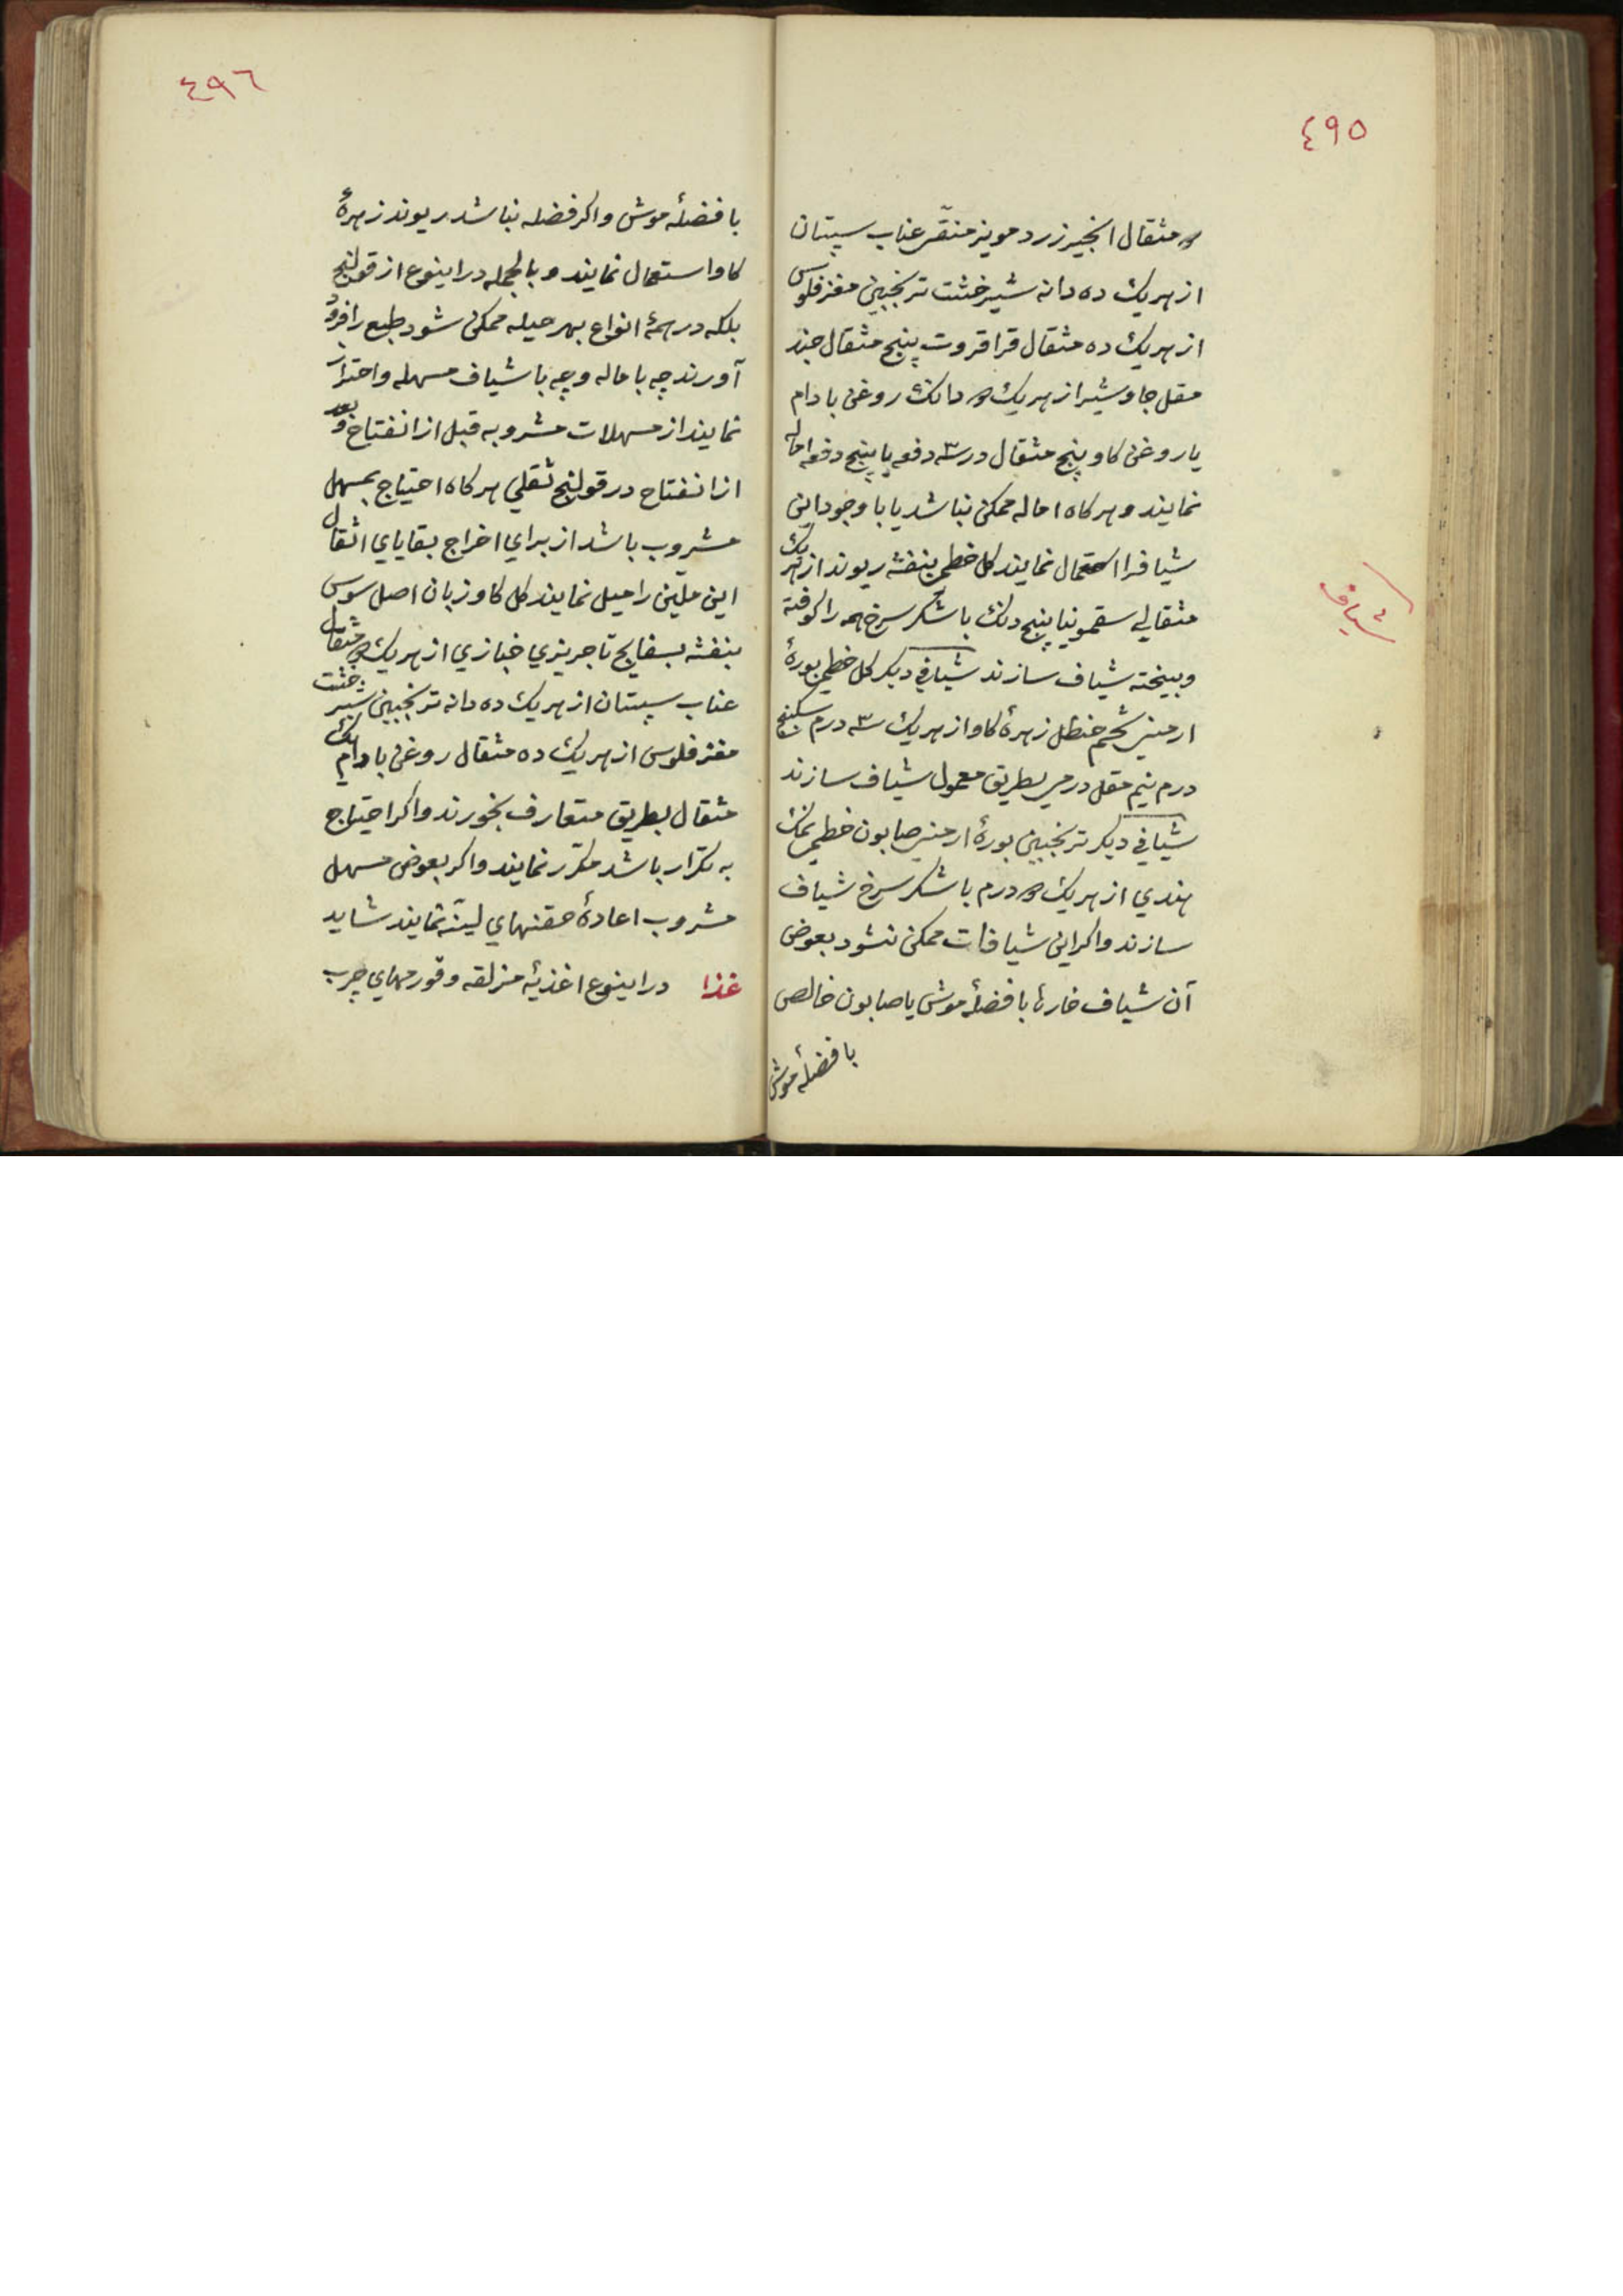 ٤٩٥
مثقال انجیر زرد مویز منقّی عناب سپستان
از هریك ده دانه شیرخشت ترنجبین مغز فلوس
از هریك ده مثقال قراقروت پنج مثقال جند
مقل جاوشیر از هریك دانك روغن بادام
یا روغن کاو پنج مثقال در سه دفعه یا پنج دفعه اماله
نمایند و هرکاه اماله ممکن نباشد یا با وجود این
شیافرا استعمال نمایند کل خطمی بنفشه ریوند از هریك
مثقالي سقمونیا پنج دنك با شکر سرخ همه را کوفته
وبیخته شیاف سازند شیافي دیکر کل خطمی بورهٔ
ارمنی شحم حنظل زهرهٔ کاو از هریك سه درم سکبینج
درم نیم مقل درمی بطریق معمول شیاف سازند
شیافي دیکر ترنجبین بورهٔ ارمنی صابون خطمی نمك
هندي از هریك درم با شکر سرخ شیاف
سازند واکر این شیافات ممکن نشود بعوض
آن شیاف خارها با فضلهٔ موش یا صابون خالص
با فضلهٔ موش
شیاف
٤٩٦
با فضلهٔ موش واکر فضله نباشد ریوند زهرهٔ
کاو استعمال نمایند و بالجمله در اینوع از قولنج
بلکه در همهٔ انواع بهر حیله ممکن شود طبع را فرود
آورند چه باماله وچه با شیاف مسهله واحتراز
نمایند از مسهلات مشروبه قبل از انفتاح و بعد
از انفتاح در قولنج ثقلي هرکاه احتیاج بمسهل
مشروب باشد از براي اخراج بقایاي اثقال
این ملیّن را میل نمایند کل کاوزبان اصل سوس
بنفشه بسفایج تاجریزي خبازي از هریك مثقال
عناب سپستان از هریك ده دانه ترنجبین شیرخشت
مغز فلوس از هریك ده مثقال روغن بادام یك
مثقال بطریق متعارف بخورند واکر احتیاج
به تکرار باشد مکرّر نمایند واکر بعوض مسهل
مشروب اعادهٔ حقنهاي لینّه نمایند شاید
غذا در اینوع اغذیهٔ مزلقه وقورمهاي چرب